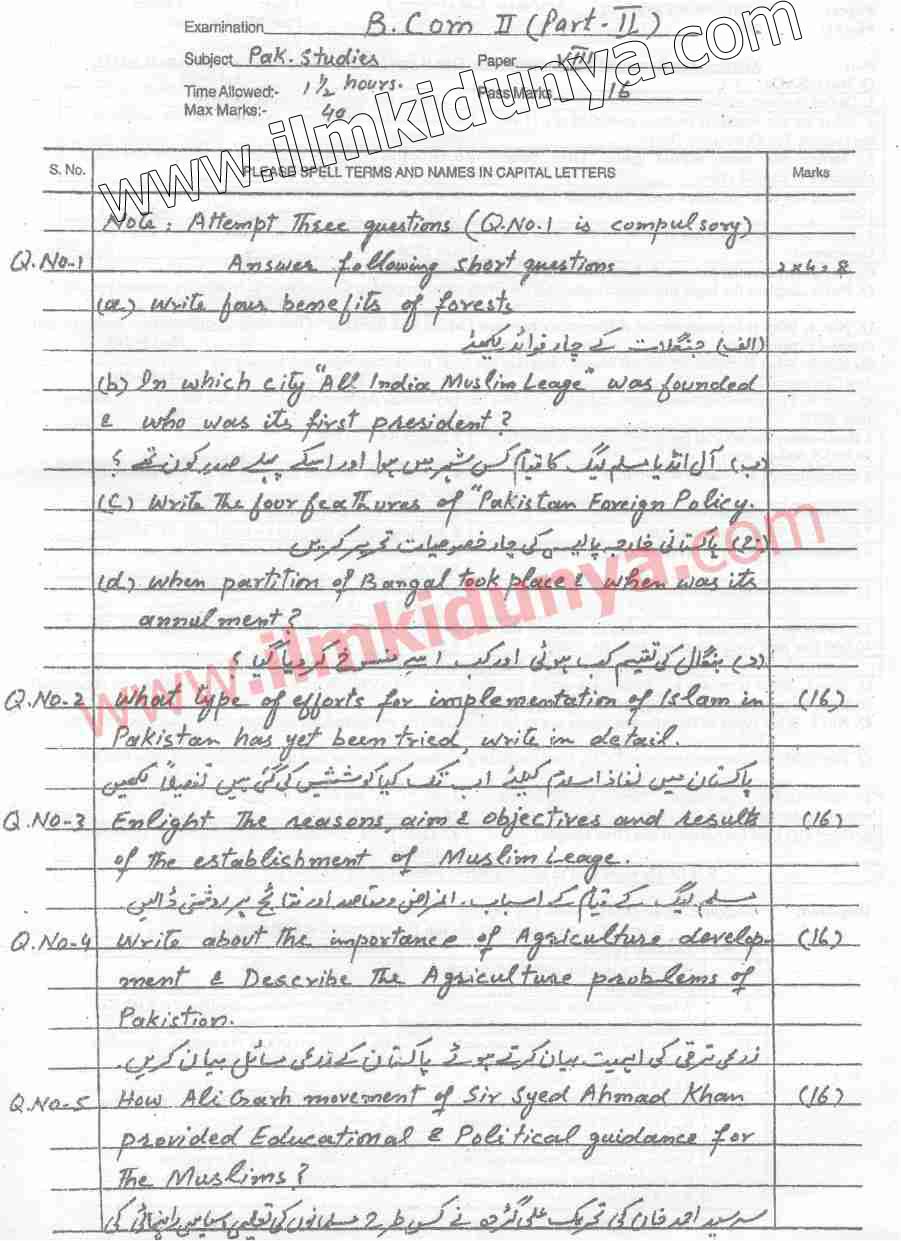 Examination B.Com II (Part-II)
Subject Pak. Studies Paper VIII
Time Allowed:- 1½ hours. Pass Marks 16
Max Marks:- 40
www.ilmkidunya.com
S. No. PLEASE SPELL TERMS AND NAMES IN CAPITAL LETTERS Marks
Note: Attempt Three questions (Q.No.1 is compulsory)
Q.No-1 Answer following short questions 2x4=8
(a) Write four benefits of forests
(الف) جنگلات کے چار فوائد لکھئے
(b) In which city "All India Muslim Leage" was founded
& who was its first president?
(ب) آل انڈیا مسلم لیگ کا قیام کس شہر میں ہوا اور اسکے پہلے صدر کون تھے؟
(c) Write the four feathures of "Pakistan Foreign Policy.
(ج) پاکستانی خارجہ پالیسی کی چار خصوصیات تحریر کریں
(d) when partition of Bangal took place & when was its
annulment?
(د) بنگال کی تقسیم کب ہوئی اور کب اسے منسوخ کر دیا گیا؟
www.ilmkidunya.com
Q.No-2 What type of efforts for implementation of Islam in (16)
Pakistan has yet been tried, write in detail.
پاکستان میں نفاذ اسلام کیلئے اب تک کیا کوششیں کی گئی ہیں تفصیلاً لکھیں
Q.No-3 Enlight The reasons, aim & objectives and results (16)
of the establishment of Muslim Leage.
مسلم لیگ کے قیام کے اسباب، اغراض و مقاصد اور نتائج پر روشنی ڈالیں۔
Q.No-4 Write about the importance of Agriculture develop- (16)
ment & Describe The Agriculture problems of
Pakistion.
زرعی ترقی کی اہمیت بیان کرتے ہوئے پاکستان کے زرعی مسائل بیان کریں۔
Q.No-5 How Ali Garh movement of Sir Syed Ahmad Khan (16)
provided Educational & Political guidance for
the Muslims?
سرسید احمد خان کی تحریک علی گڑھ نے کس طرح مسلمانوں کی تعلیمی و سیاسی راہنمائی کی